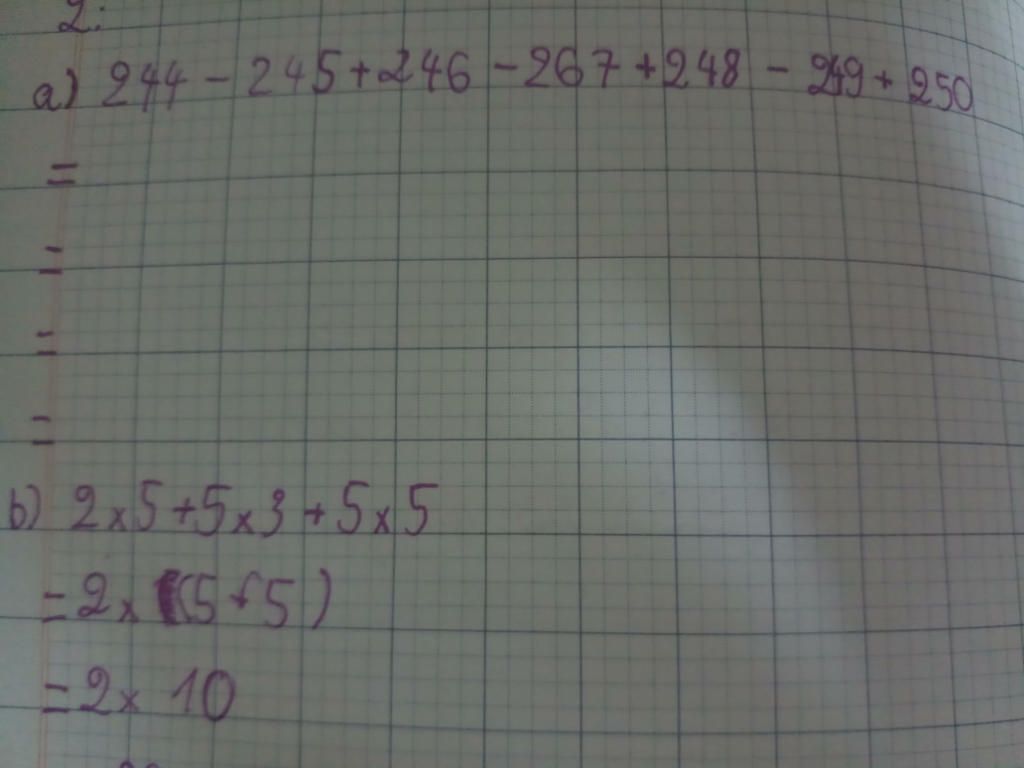 2:
a) 244 - 245 + 246 - 267 + 248 - 249 + 250
=
=
=
=
b) 2 x 5 + 5 x 3 + 5 x 5
= 2 x (5 + 5)
= 2 x 10